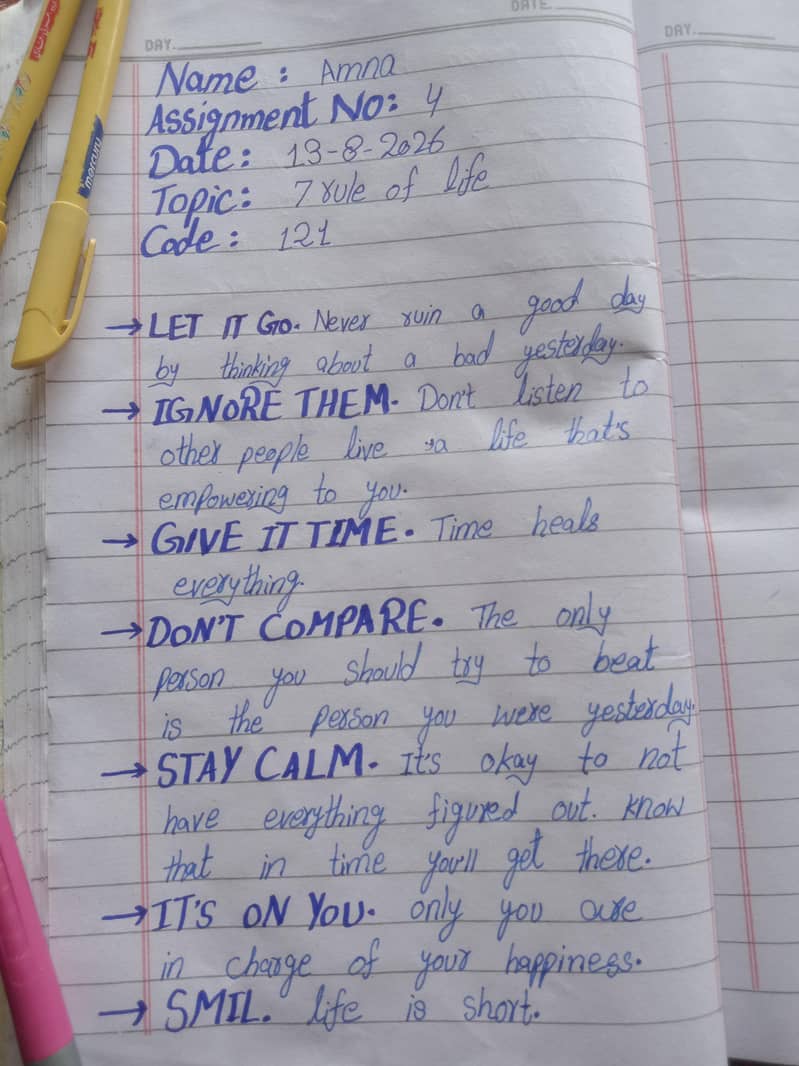 DATE
DAY.
DAY.
Name : Amna
Assignment No: 4
Date: 13-8-2026
Topic: 7 rule of life
Code: 121
→ LET IT GO. Never ruin a good day
by thinking about a bad yesterday.
→ IGNORE THEM. Don't listen to
other people live a life that's
empowering to you.
→ GIVE IT TIME. Time heals
everything.
→ DON'T COMPARE. The only
person you should try to beat
is the person you were yesterday.
→ STAY CALM. It's okay to not
have everything figured out. know
that in time you'll get there.
→ IT'S ON YOU. only you are
in charge of your happiness.
→ SMIL. life is short.
mercury